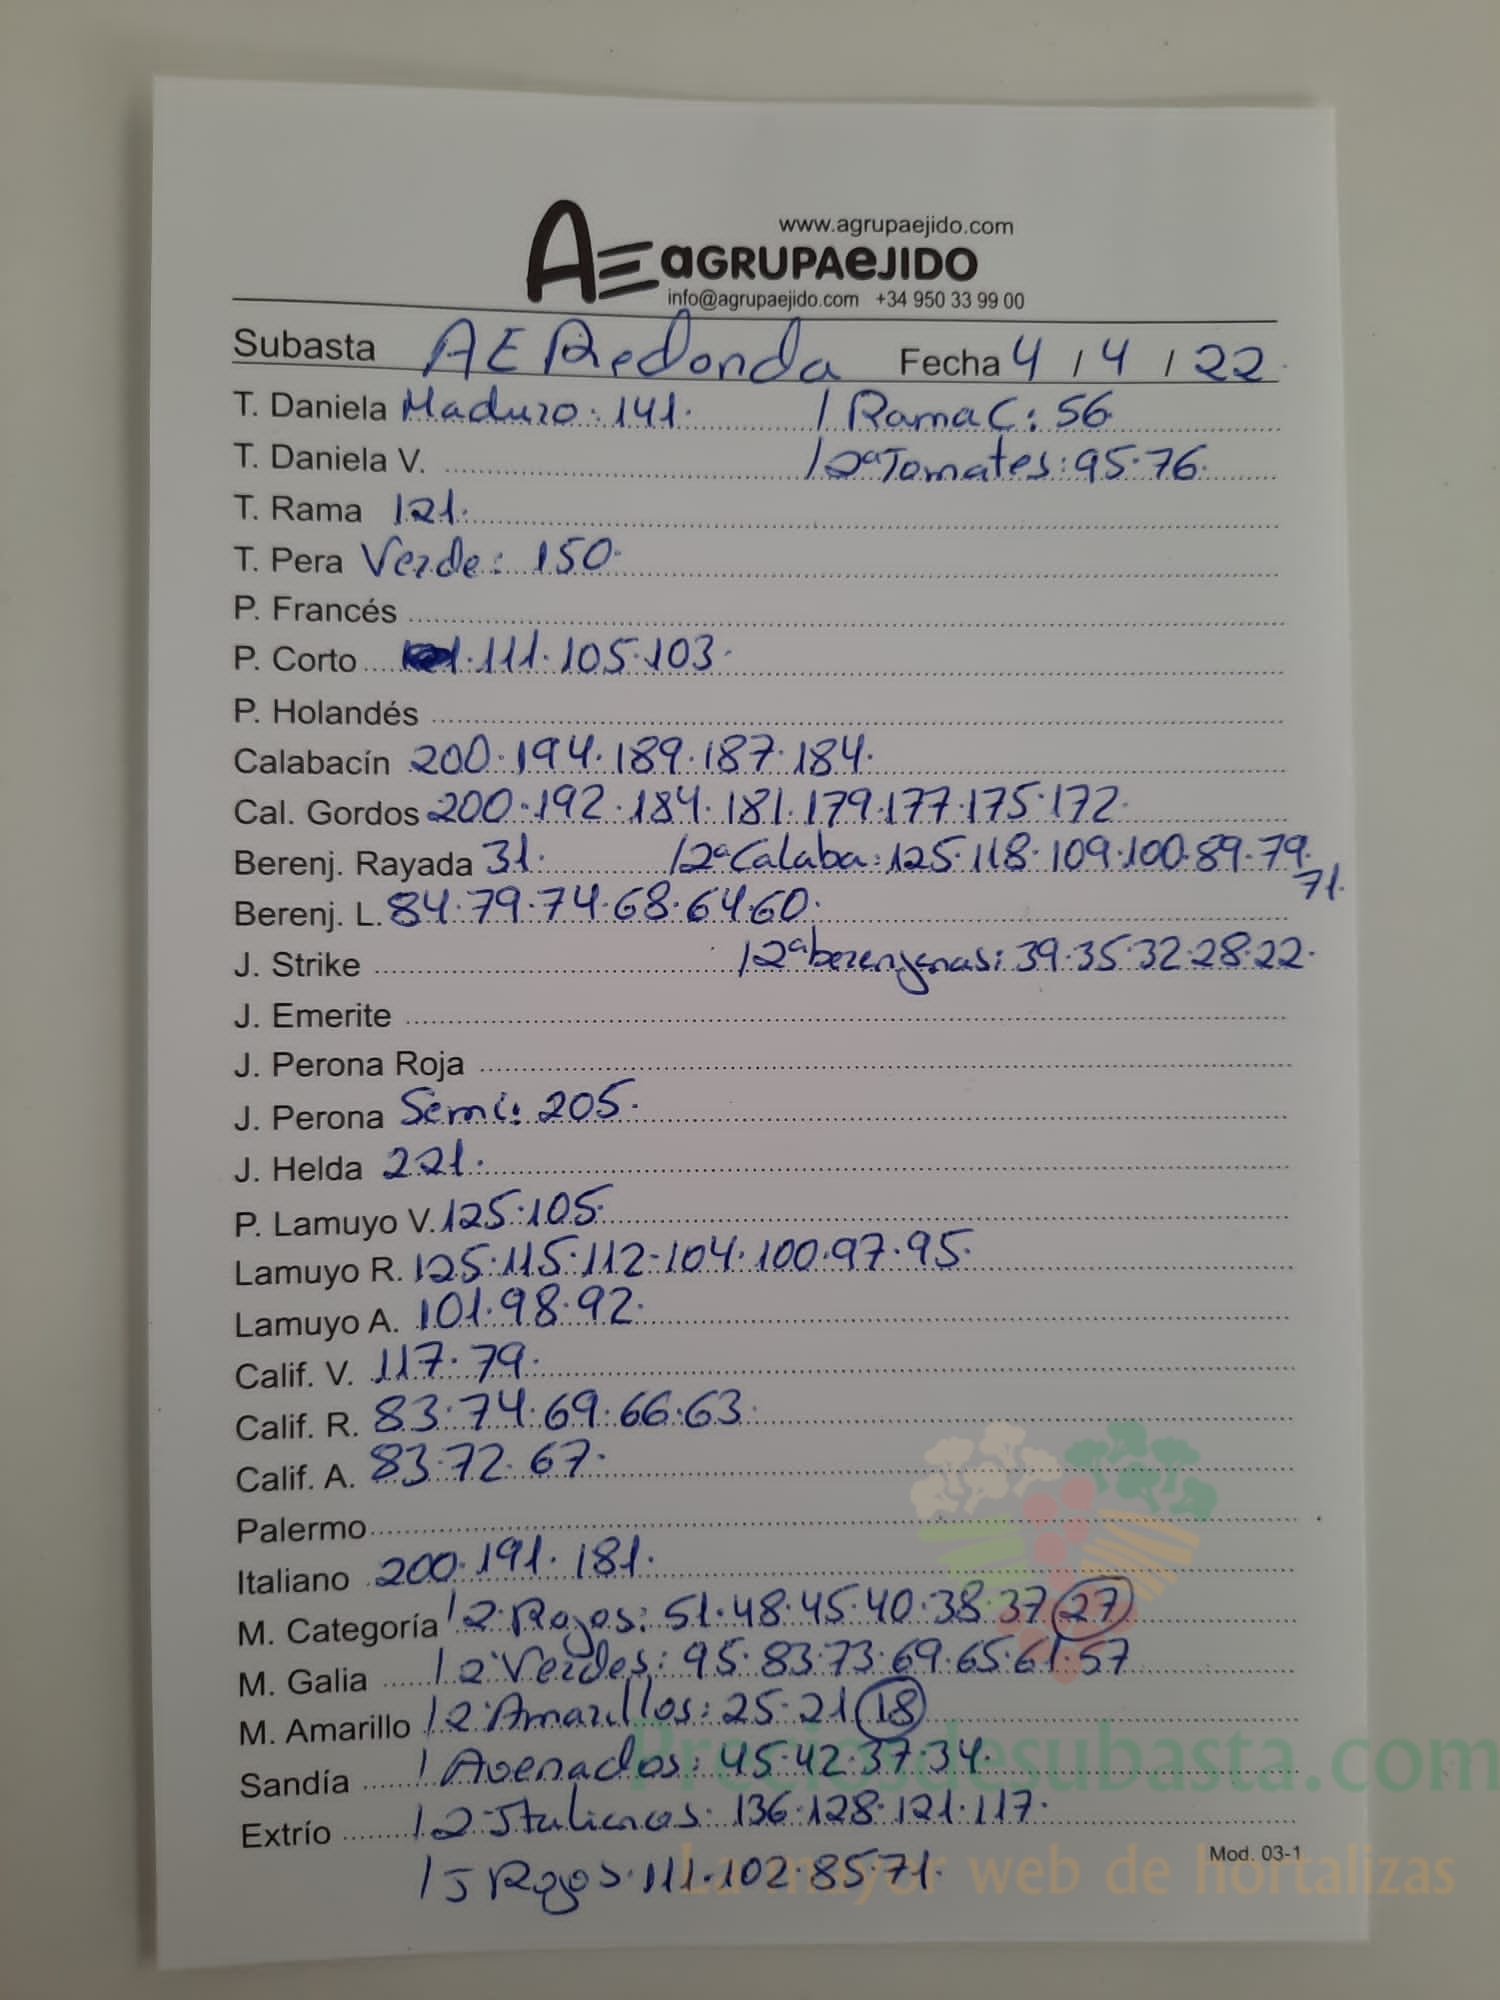 www.agrupaejido.com
AE aGRUPAeJIDO
info@agrupaejido.com +34 950 33 99 00
Subasta AE Redonda Fecha 4 / 4 / 22
T. Daniela Maduro: 141. / Rama C: 56
T. Daniela V. / 2ª Tomates: 95.76.
T. Rama 121.
T. Pera Verde: 150.
P. Francés
P. Corto .111.105.103.
P. Holandés
Calabacín 200.194.189.187.184.
Cal. Gordos 200.192.184.181.179.177.175.172.
Berenj. Rayada 31. / 2ª Calaba: 125.118.109.100.89.79.
71.
Berenj. L. 84.79.74.68.64.60.
J. Strike / 2ª berenjenas: 39.35.32.28.22.
J. Emerite
J. Perona Roja
J. Perona Semi: 205.
J. Helda 221.
P. Lamuyo V. 125.105.
Lamuyo R. 125.115.112-104.100.97.95.
Lamuyo A. 101.98.92.
Calif. V. 117.79.
Calif. R. 83.74.69.66.63.
Calif. A. 83.72.67.
Palermo
Italiano 200.191.181.
M. Categoría / 2ª Rojos: 51.48.45.40.38.37 27
M. Galia / 2ª Verdes: 95.83.73.69.65.61.57
M. Amarillo / 2ª Amarillos: 25.21 18
Sandía / Asenados: 45.42.37.34.
Extrío / 2ª Italianos: 136.128.121.117.
Mod. 03-1
/ J Rojos.111.102.85.71.
Preciosdesubasta.com
La mayor web de hortalizas